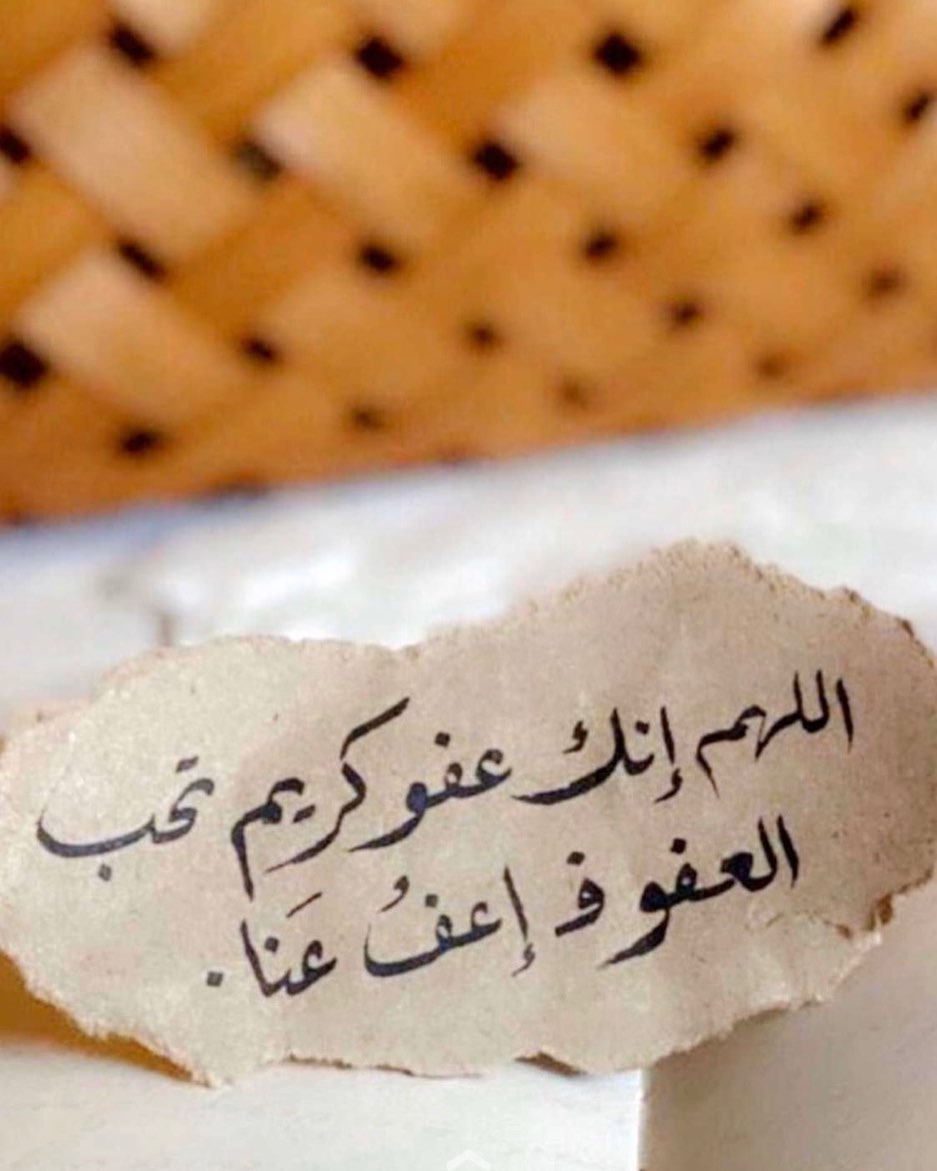 اللهم إنك عفو كريم تحب
العفو ف إعفُ عَنا.